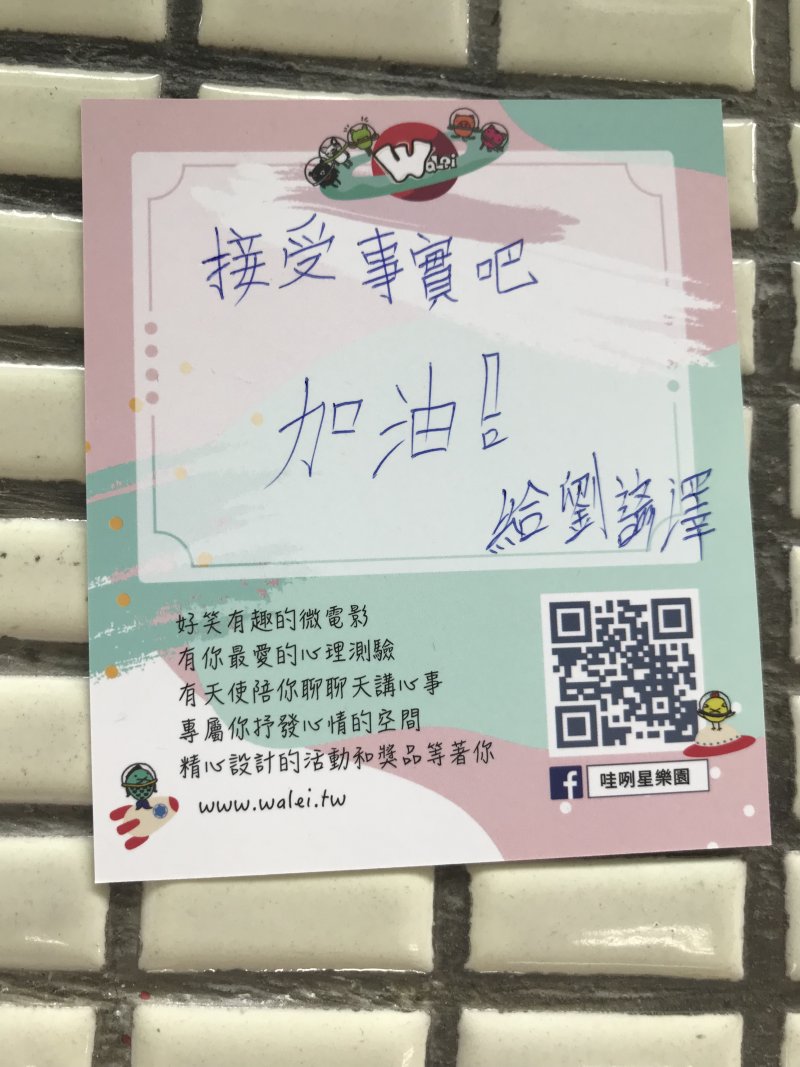 Walei
接受事實吧
加油!
給劉諺澤
好笑有趣的微電影
有你最愛的心理測驗
有天使陪你聊聊天講心事
專屬你抒發心情的空間
精心設計的活動和獎品等著你
www.walei.tw
哇咧星樂園